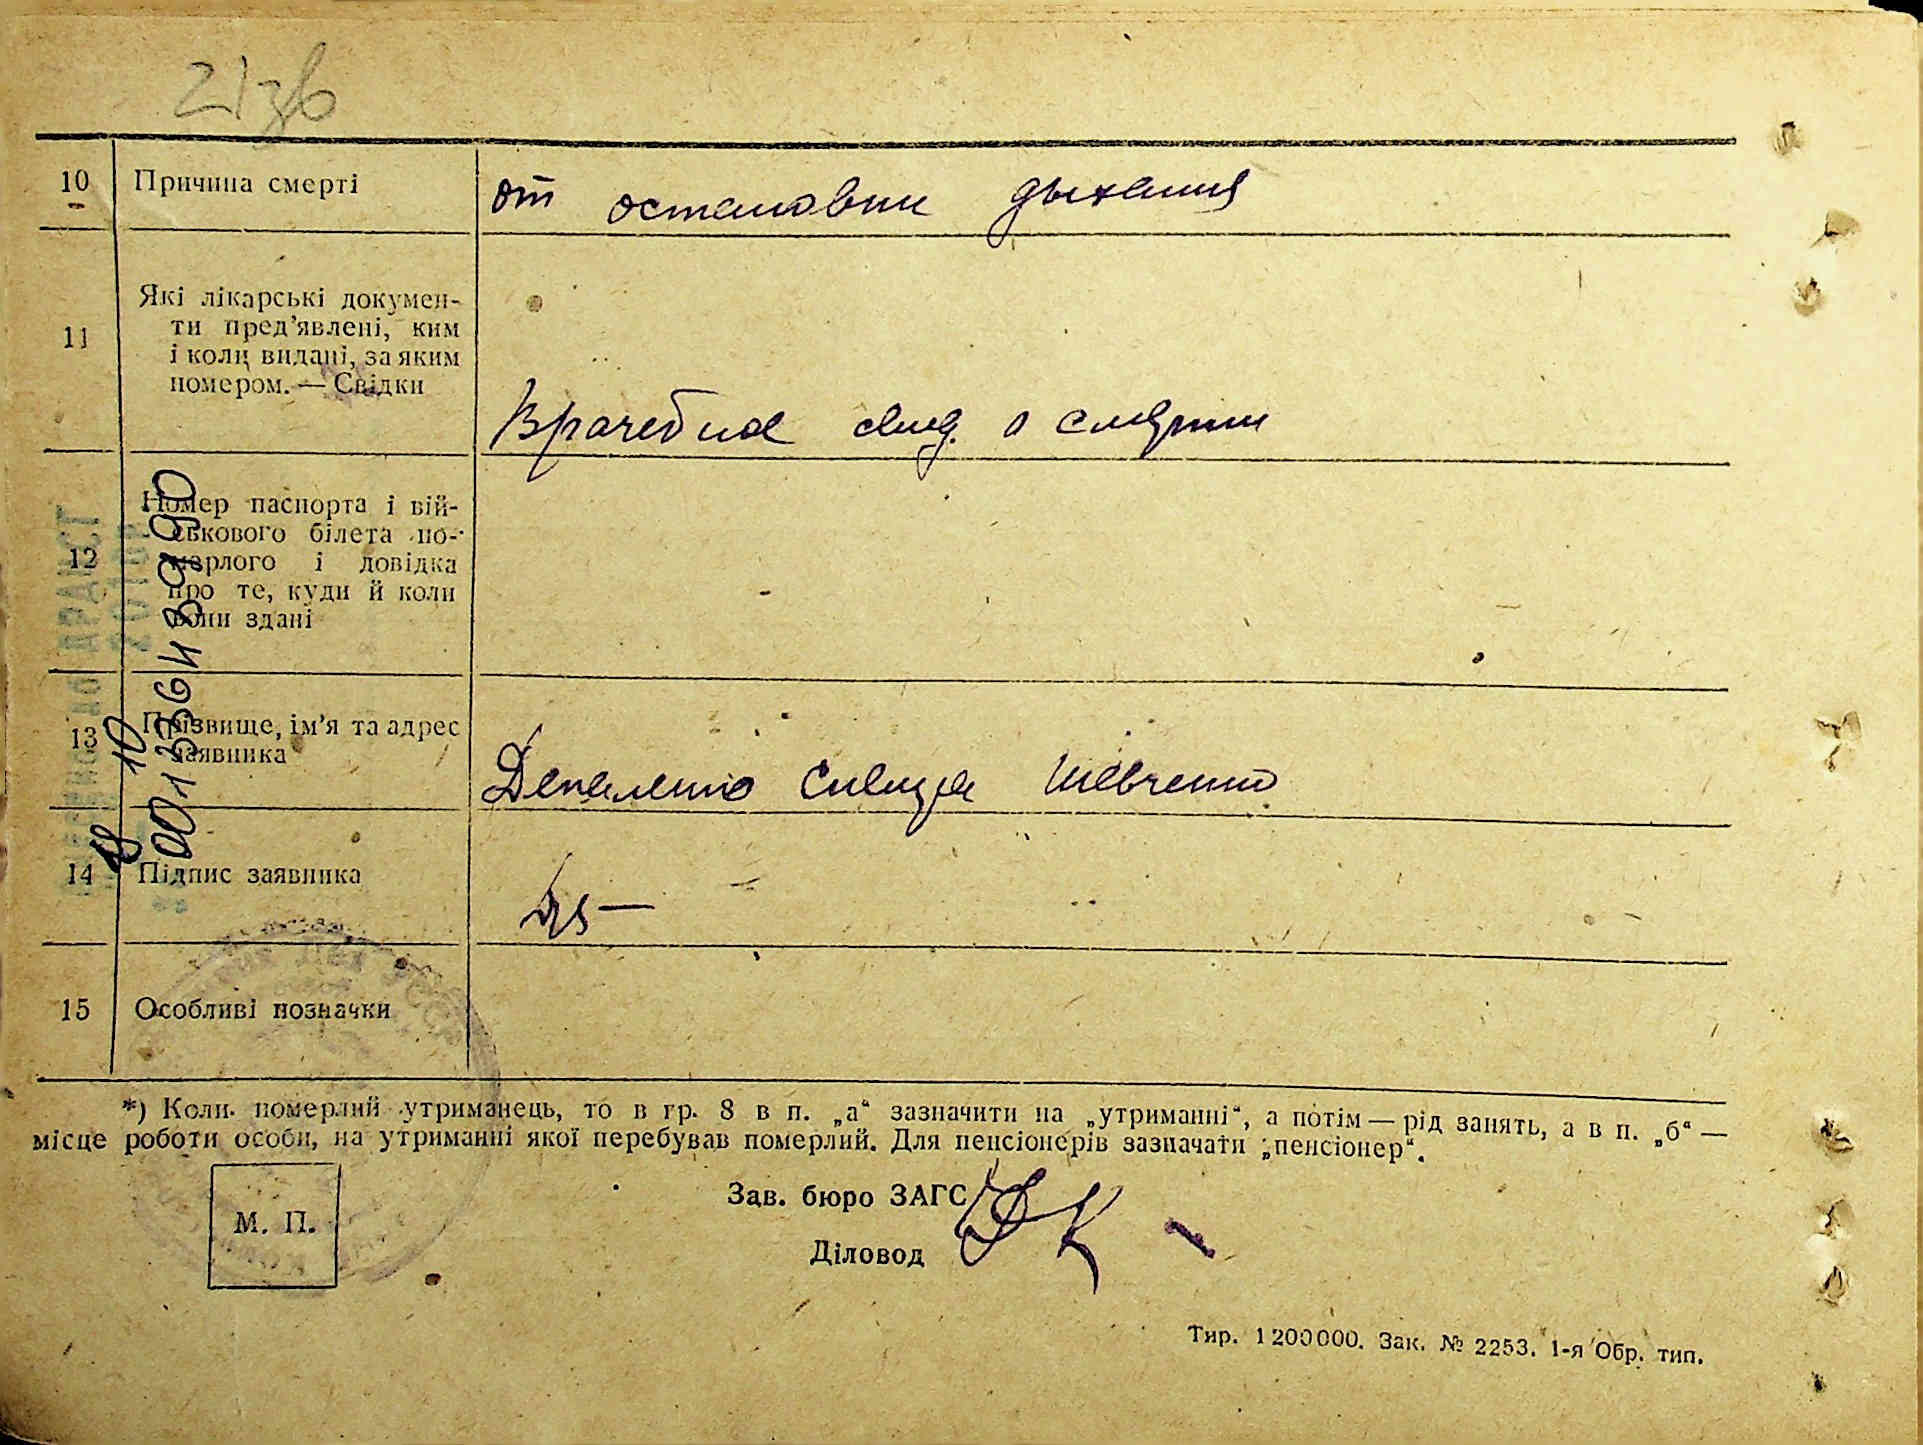 21зв
10 Причина смерті от остановки дыхания
11 Які лікарські докумен-
ти пред’явлені, ким
і коли видані, за яким
номером. — Свідки
Врачебное свид. о смерти
12 Номер паспорта і вій-
ськового білета по-
мерлого і довідка
про те, куди й коли
вони здані
13 Прізвище, ім’я та адрес
заявника
Шевченко
14 Підпис заявника
15 Особливі позначки
*) Коли померлий утриманець, то в гр. 8 в п. „а“ зазначити на „утриманні“, а потім — рід занять, а в п. „б“ —
місце роботи особи, на утриманні якої перебував померлий. Для пенсіонерів зазначати „пенсіонер“.
М. П.
Зав. бюро ЗАГС
Діловод
Тир. 1200000. Зак. № 2253. 1-я Обр. тип.